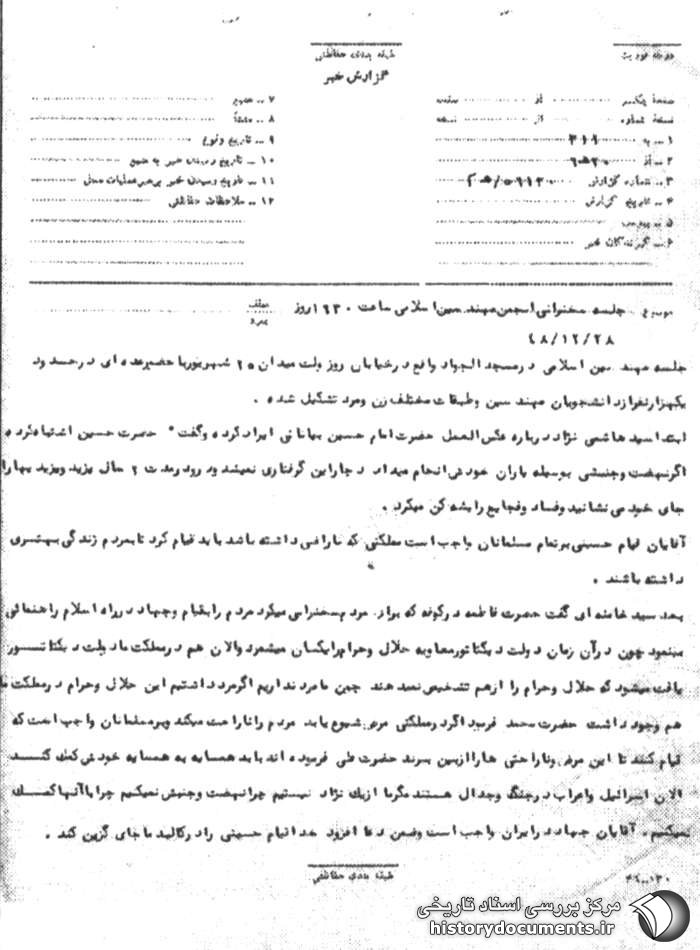 طبقه بندی حفاظتی
گزارش خبر
صفحه یکم از صفحه
نسخه شماره از نسخه
۱ ــ به ۳۱۱
۲ ــ از
۳ ــ شماره گزارش
۴ ــ تاریخ گزارش
۵ ــ پیوست
۶ ــ گیرندگان خبر
۷ ــ منبع
۸ ــ منشأ
۹ ــ تاریخ وقوع
۱۰ ــ تاریخ رسیدن خبر به منبع
۱۱ ــ تاریخ رسیدن خبر برهبر عملیات محل
۱۲ ــ ملاحظات حفاظتی
موضوع جلسه سخنرانی انجمن مهندسین اسلامی ساعت ۱۹۳۰ روز
۴۸/۱۲/۲۸
جلسه مهندسین اسلامی در مسجد الجواد واقع در خیابان روزولت میدان ۲۵ شهریور با حضور عده ای در حدود
یکهزار نفر از دانشجویان مهندسین وطبقات مختلف زن ومرد تشکیل شده .
ابتدا سید هاشمی نژاد درباره عکس العمل حضرت امام حسین بیاناتی ایراد کرده وگفت " حضرت حسین اشتباه کرده
اگر نهضت وجنبشی بوسیله یاران خودش انجام میداد دچار این گرفتاری نمیشد ودر مدت ۲ سال یزید ویزیدیها را
جای خود می نشانید وفساد وفجایع را ریشه کن میکرد .
آقایان قیام حسینی بر تمام مسلمانان واجب است مملکتی که ناراضی داشته باشد باید قیام کرد تا مردم زندگی بهتری
داشته باشند .
بعد سید خامنه ای گفت حضرت فاطمه در کوفه که برای مردم سخنرانی میکرد مردم را بقیام وجهاد در راه اسلام راهنمائی
مینمود چون در آن زمان دولت دیکتاتور معاویه حلال وحرام را یکسان میشمرد والان هم در مملکت ما دولت دیکتاتور
یافت میشود که حلال وحرام را از هم تشخیص نمیدهند چون ما مرد نداریم اگر مرد داشتیم این حلال وحرام در مملکت ما
هم وجود داشت حضرت محمد فرمود اگر در مملکتی مرض شیوع یابد مردم را ناراحت میکند وبر مسلمانان واجب است که
قیام کنند تا این مرض وناراحتی ها را از بین ببرند حضرت علی فرموده اند باید همسایه به همسایه خودش کمک کنند
الان اسرائیل واعراب در جنگ وجدال هستند مگر ما از یک نژاد نیستیم چرا نهضت وجنبش نمیکنیم چرا با آنها کمک
نمیکنیم . آقایان جهاد در ایران واجب است وضمن دعا افزود خدا قیام حسینی را در کالبد ما جای گزین کند .
طبقه بندی حفاظتی
مرکز بررسی اسناد تاریخی
historydocuments.ir